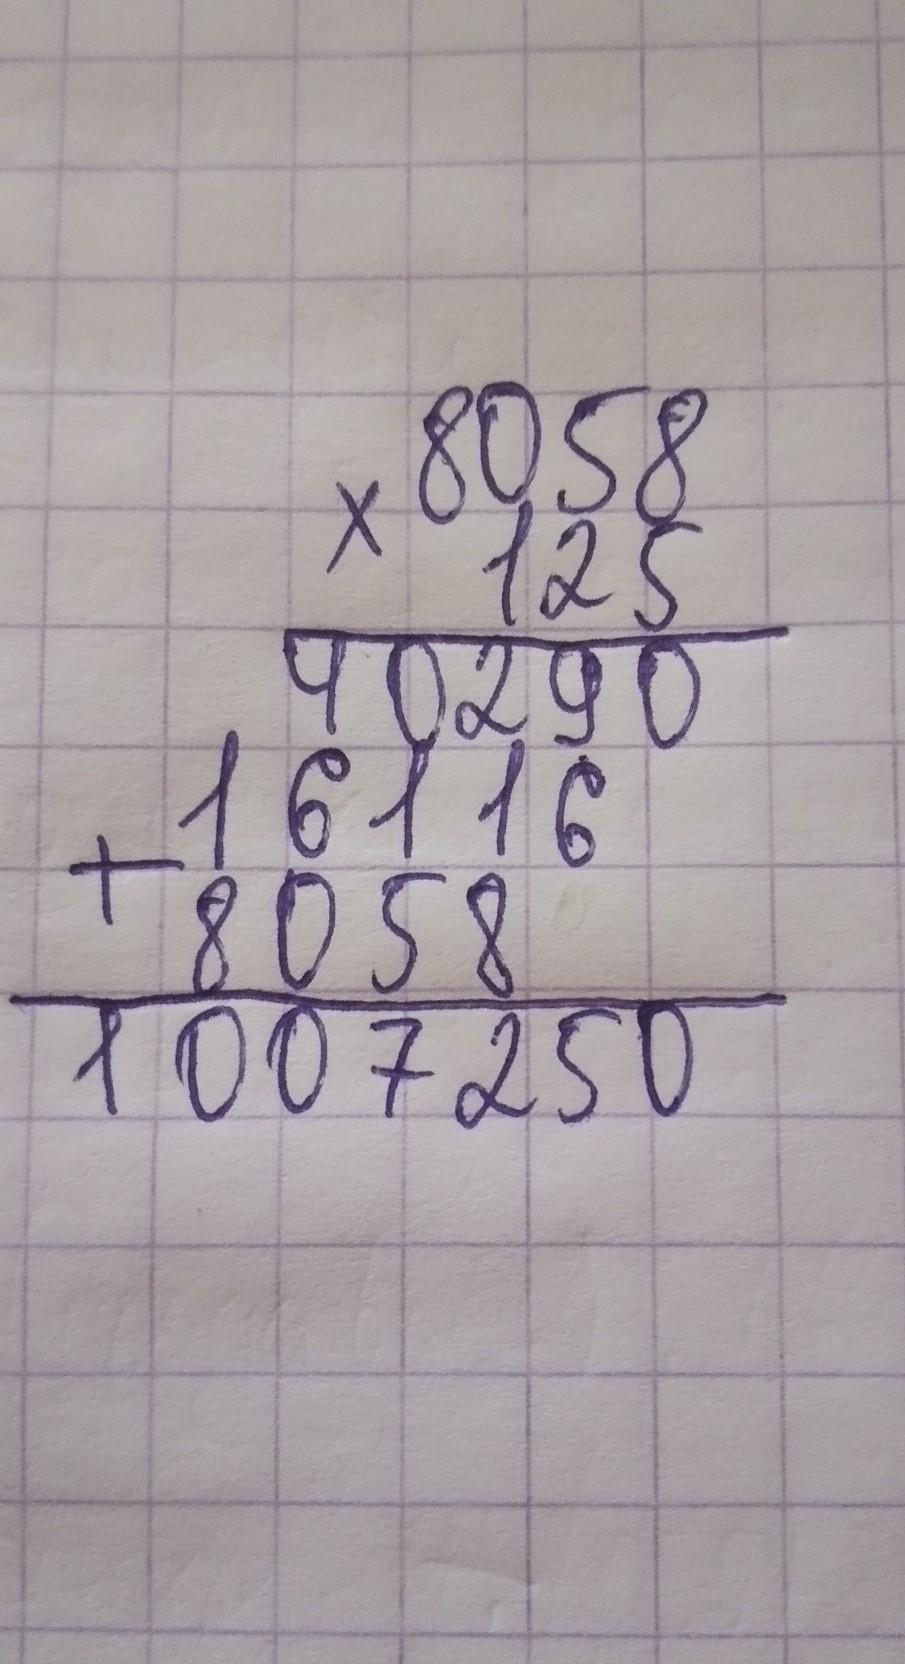 8058
× 125
40290
16116
+ 8058
1007250